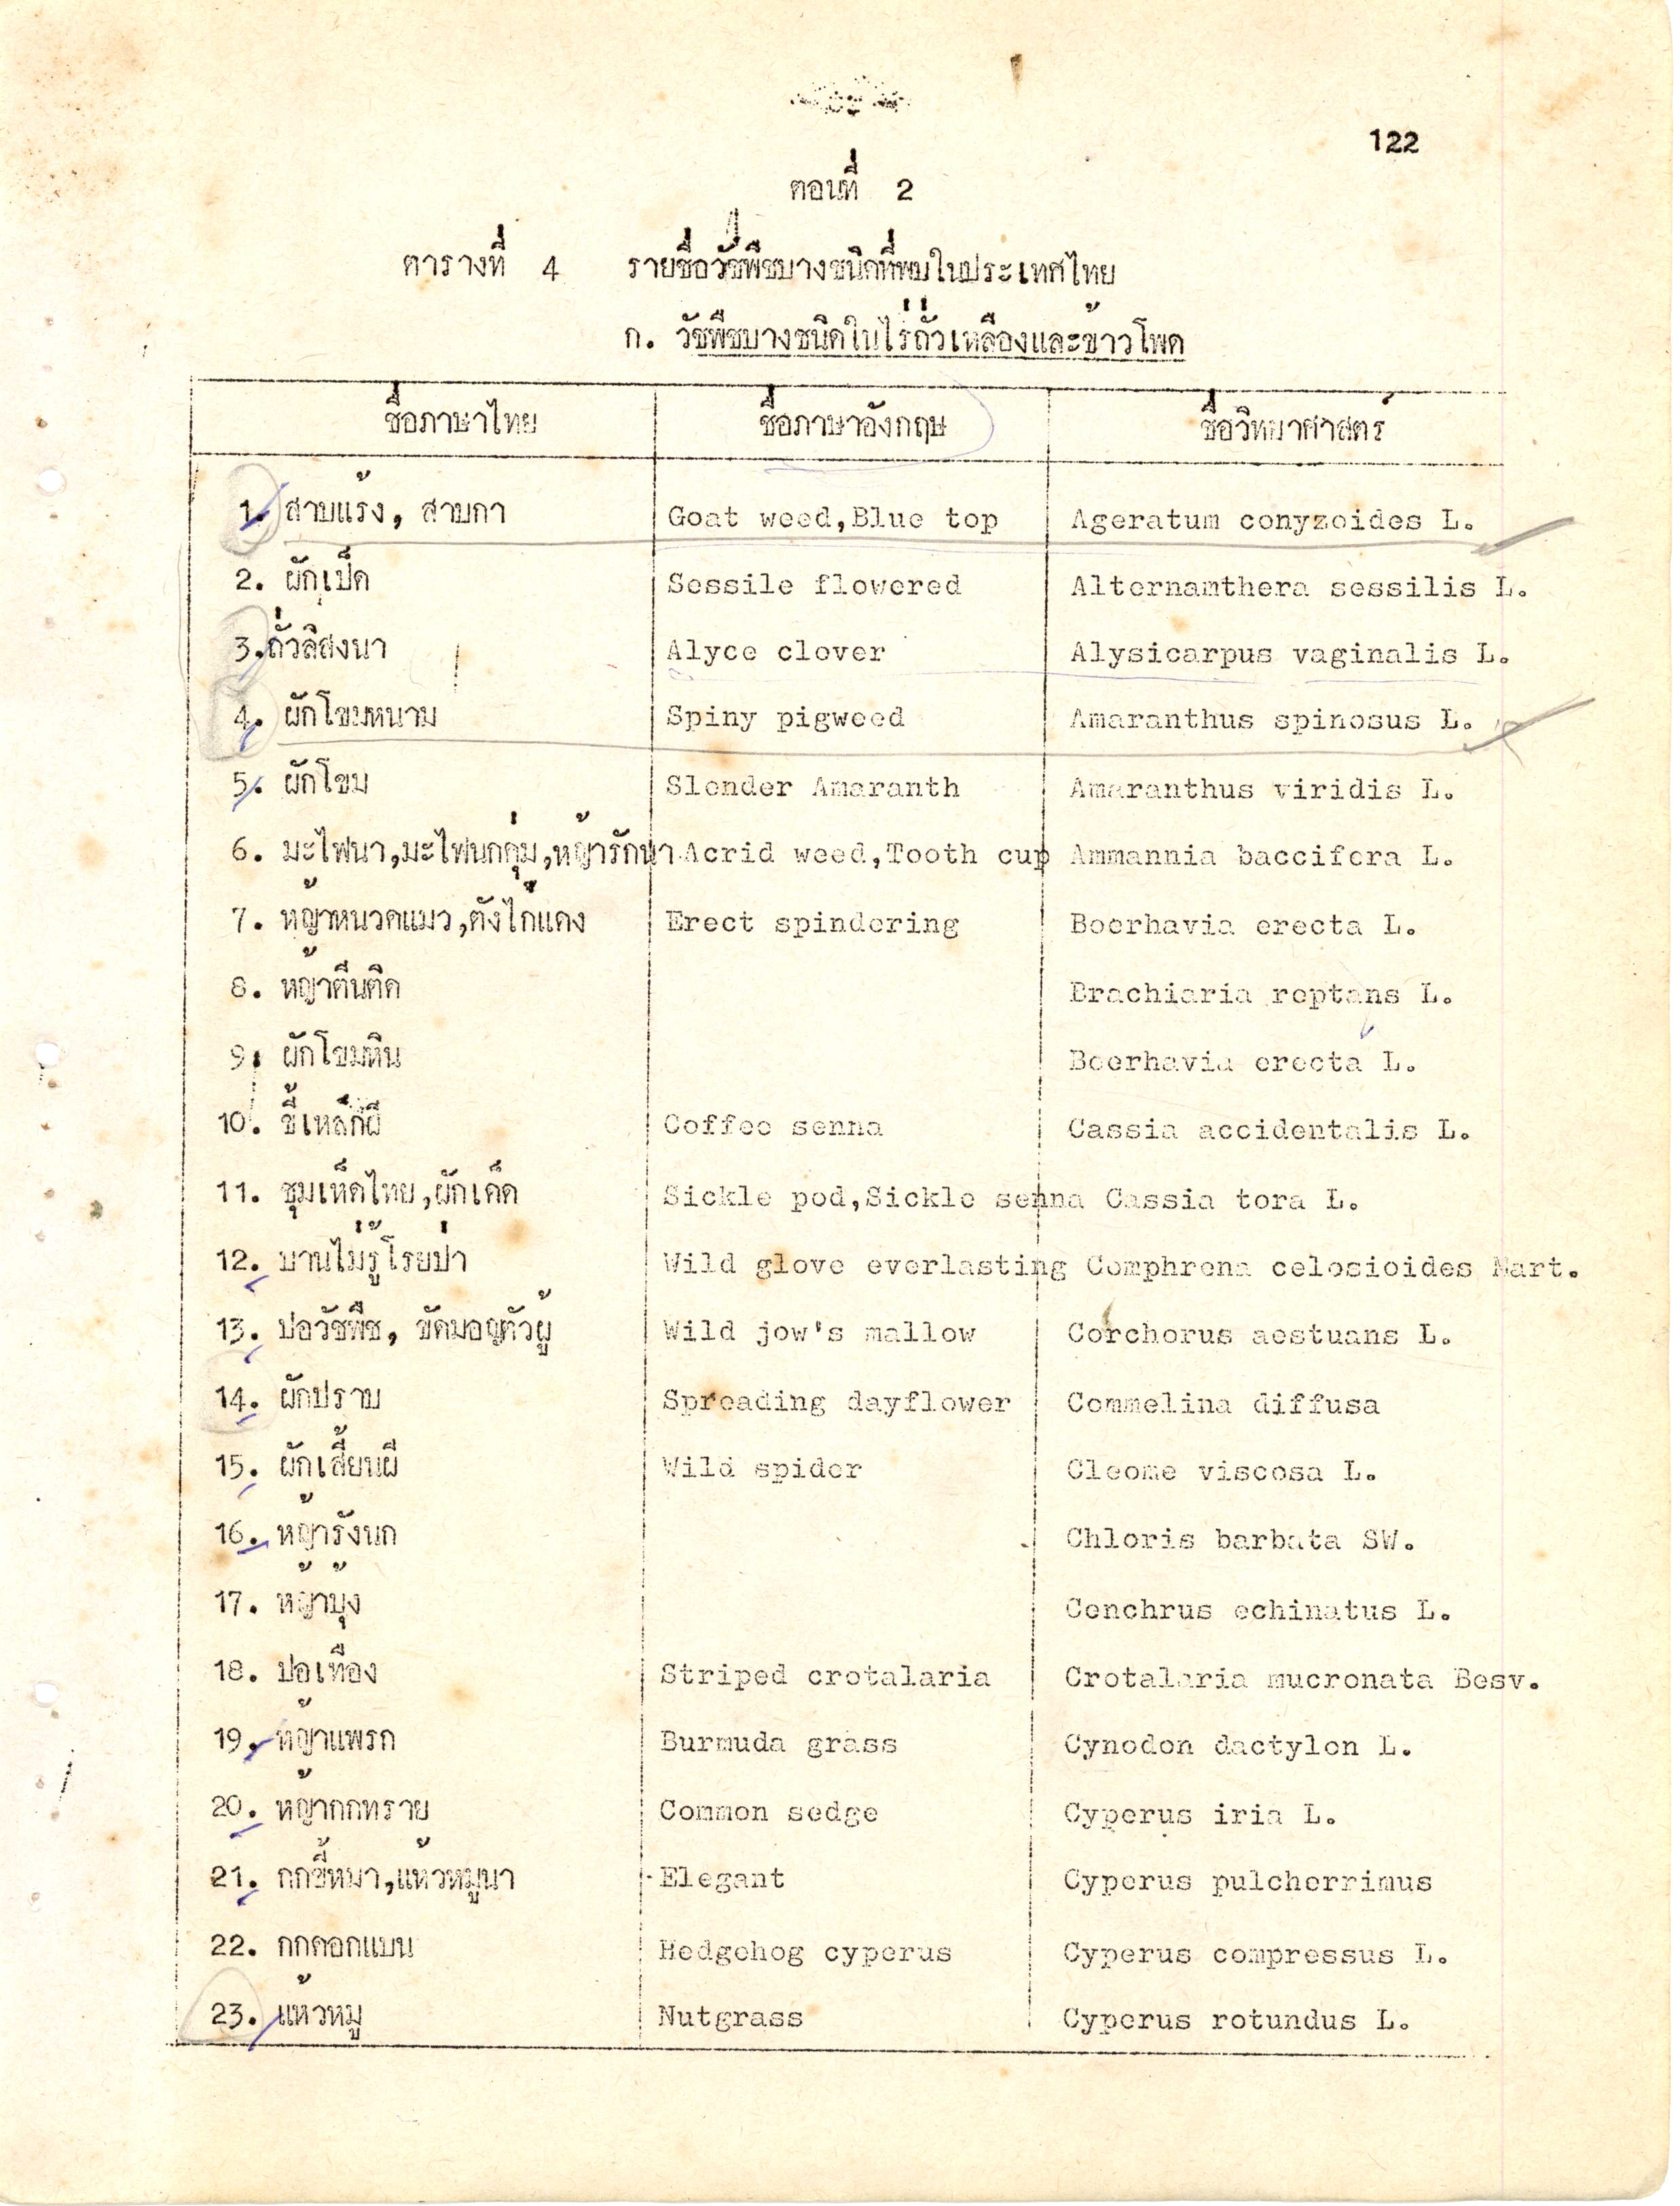 122
ตอนที่ 2
ตารางที่ 4 รายชื่อวัชพืชบางชนิดที่พบในประเทศไทย
ก. วัชพืชบางชนิดในไร่ถั่วเหลืองและข้าวโพด
ชื่อภาษาไทย ชื่อภาษาอังกฤษ ชื่อวิทยาศาสตร์
1. สาบแร้ง, สาบกา Goat weed,Blue top Ageratum conyzoides L.
2. ผักเป็ด Sessile flowered Alternamthera sessilis L.
3.ถั่วลิสงนา Alyce clover Alysicarpus vaginalis L.
4. ผักโขมหนาม Spiny pigweed Amaranthus spinosus L.
5. ผักโขม Slender Amaranth Amaranthus viridis L.
6. มะไฟนา,มะไฟนกคุ่ม,หญ้ารักนา Acrid weed,Tooth cup Ammannia baccifera L.
7. หญ้าหนวดแมว,ตังไก่แดง Erect spindering Boerhavia erecta L.
8. หญ้าตีนติด Brachiaria reptans L.
9. ผักโขมหิน Boerhavia erecta L.
10. ขี้เหล็กผี Coffee senna Cassia accidentalis L.
11. ชุมเห็ดไทย,ผักเค็ด Sickle pod,Sickle senna Cassia tora L.
12. บานไม่รู้โรยป่า Wild glove everlasting Gomphrena celosioides Mart.
13. ปอวัชพืช, ขัดมอญตัวผู้ Wild jew's mallow Corchorus aestuans L.
14. ผักปราบ Spreading dayflower Commelina diffusa
15. ผักเสี้ยนผี Wild spider Cleome viscosa L.
16. หญ้ารังนก Chloris barbata SW.
17. หญ้าบุ้ง Cenchrus echinatus L.
18. ปอเทือง Striped crotalaria Crotalaria mucronata Besv.
19. หญ้าแพรก Burmuda grass Cynodon dactylon L.
20. หญ้ากกทราย Common sedge Cyperus iria L.
21. กกขี้หมา,แห้วหมูนา Elegant Cyperus pulcherrimus
22. กกดอกแบน Hedgehog cyperus Cyperus compressus L.
23. แห้วหมู Nutgrass Cyperus rotundus L.